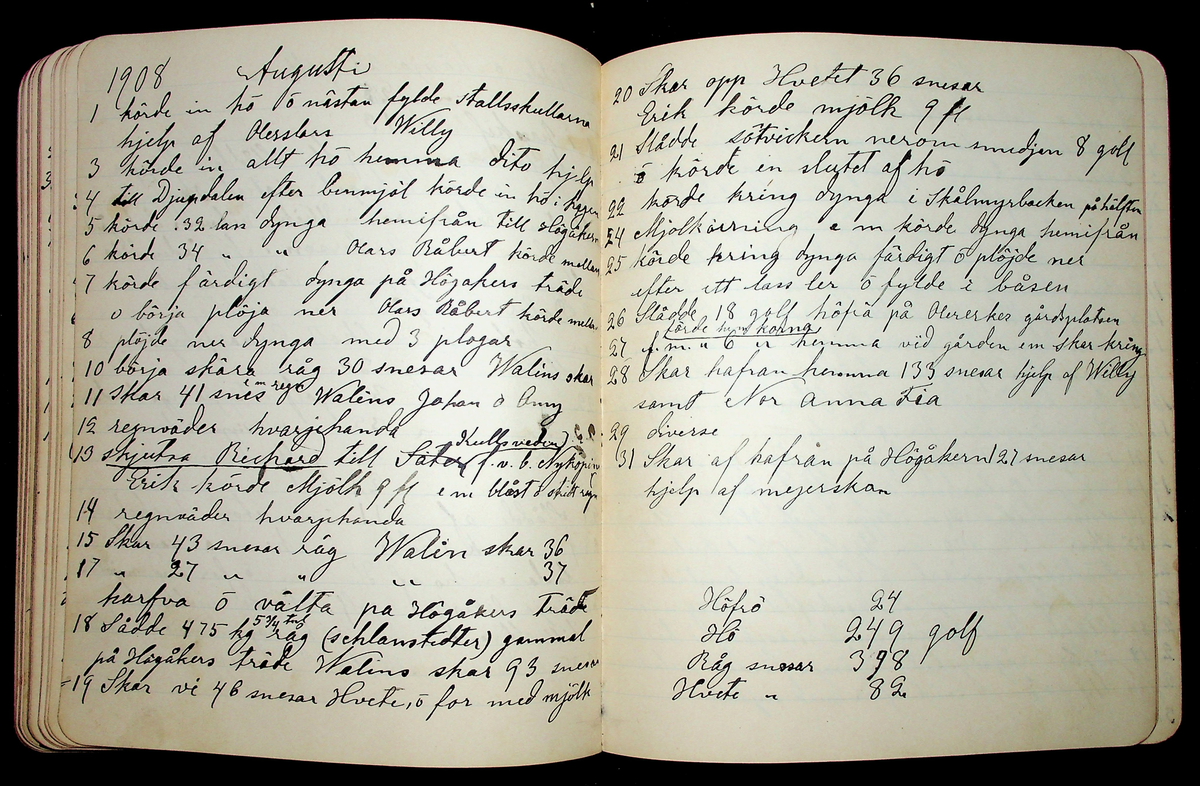 1908 Augusti
1 körde in hö ö nästan fylde stallsskullarna
hjelp af Olerslars Willy
3 körde in allt hö hemma dito hjelp
4 till Djupdalen efter benmjöl körde in hö i hagen
5 körde 32 lass dynga hemifrån till Högåkern
6 körde 34 " " Olars Råbert körde mellan
7 körde färdigt dynga på Högakers träde
o börja plöja ner Olars Råbert körde mellan
8 plöjde ner dynga med 3 plogar
10 börja skära råg 30 snesar Walins skar
11 skar 41 snes em regn o Walins Johan o Anny
12 regnväder hvarjehanda
13 skjutsa Richard till Säter Kullsveden f.v.b. Nyköping
Erik körde Mjölk 9 ft em blåst o skitt regn
14 regnväder hvarjehanda
15 Skar 43 snesar råg Walin skar 36
17 " 27 " " " 37
harfva ö välta på Högåkers träde
18 Sådde 475 kg 5 3/4 tnr råg (schlanstedter) gammal
på Högåkers träde Walins skar 93 snesar
19 Skar vi 46 snesar Hvete, ö for med mjölk
20 Skar opp Hvetet 36 snesar
Erik körde mjölk 9 ft
21 Slådde sötvickern nerom smedjen 8 golf
ö körde en slutet af hö
22 körde kring dynga i Skålmyrbacken på hälften
24 Mjölkörning e m körde dynga hemifrån
25 körde kring dynga färdigt ö plöjde ner
efter ett lass ler ö fylde i båsen
26 Slådde 18 golf höfrä på Olererkes gårdsplatsen
körde hem korna
27 " m " 6 " hemma vid gården em skar kring
28 Skar hafran hemma 133 snesar hjelp af Willy
samt Nor Anna Fia
29 diverse
31 Skar af hafrån på Högåkern 127 snesar
hjelp af mejerskan
Höfrö 24
Hö 249 golf
Råg snesar 398
Hvete " 82